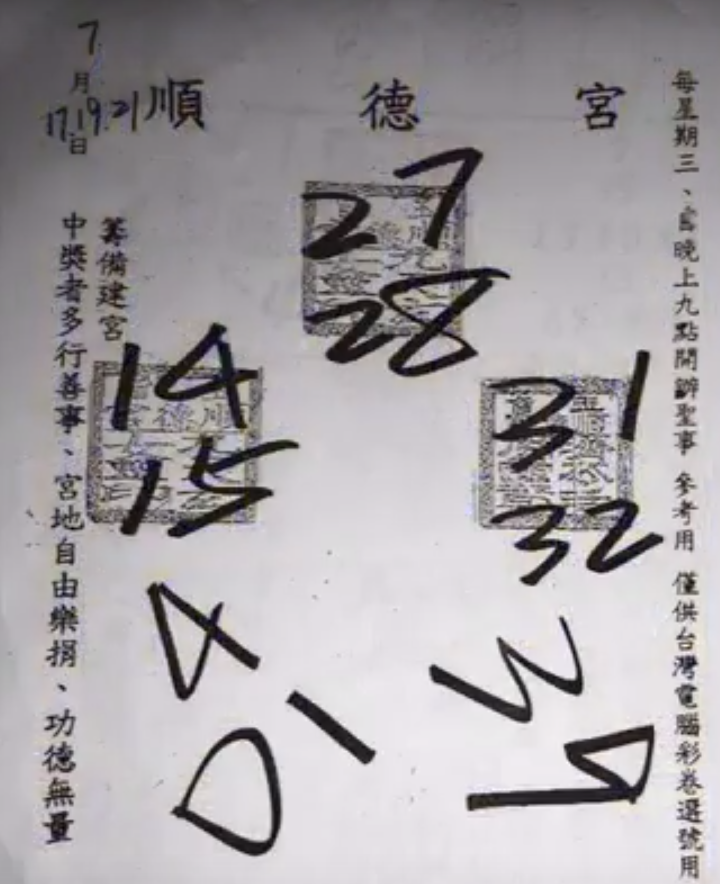 每星期三、六晚上九點開辦聖事 參考用 僅供台灣電腦彩卷選號用
順德宮
7月
17.19.21日
籌備建宮
中獎者多行善事、宮地自由樂捐、功德無量
27
28
14
15
31
32
4
0
1
3